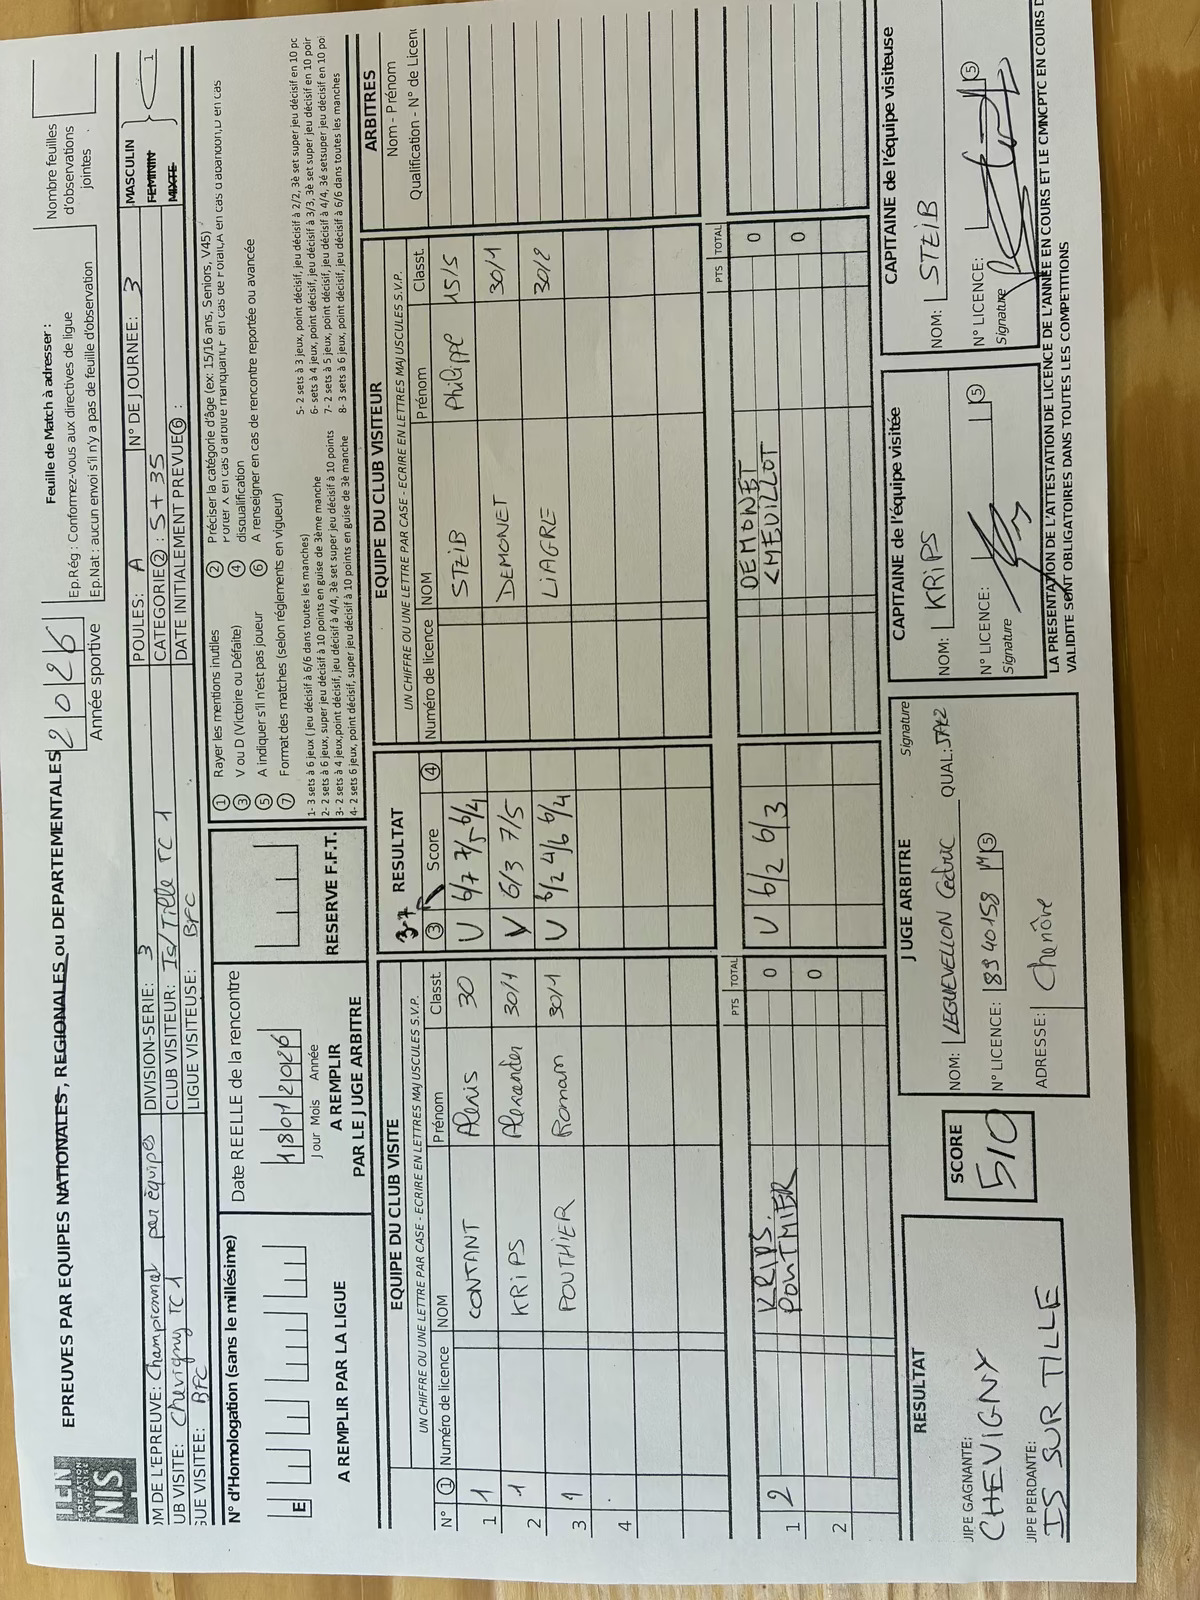 TEN
FÉDÉRATION
FRANÇAISE
NIS
EPREUVES PAR EQUIPES NATIONALES, REGIONALES ou DEPARTEMENTALES
2026
Année sportive
Feuille de Match à adresser :
Ep.Rég : Conformez-vous aux directives de ligue
Ep.Nat : aucun envoi s'il n'y a pas de feuille d'observation
Nombre feuilles
d'observations
jointes
OM DE L'EPREUVE: Championnat par équipes DIVISION-SERIE: 3 POULES: A N° DE JOURNEE: 3
UB VISITE: Chevigny TC 1 CLUB VISITEUR: Is/Tille TC 1 CATEGORIE② : S+ 35
GUE VISITEE: BFC LIGUE VISITEUSE: BFC DATE INITIALEMENT PREVUE⑥ :
MASCULIN
FEMININ
MIXTE
1
N° d'Homologation (sans le millésime)
E
A REMPLIR PAR LA LIGUE
Date REELLE de la rencontre
18012026
Jour Mois Année
A REMPLIR
PAR LE JUGE ARBITRE
RESERVE F.F.T.
① Rayer les mentions inutiles
③ V ou D (Victoire ou Défaite)
⑤ A indiquer s'il n'est pas joueur
⑦ Format des matches (selon réglements en vigueur)
② Préciser la catégorie d'âge (ex: 15/16 ans, Seniors, V45)
④ disqualification
⑥ A renseigner en cas de rencontre reportée ou avancée
1- 3 sets à 6 jeux ( jeu décisif à 6/6 dans toutes les manches)
2- 2 sets à 6 jeux, super jeu décisif à 10 points en guise de 3ème manche
3- 2 sets à 4 jeux,point décisif, jeu décisif à 4/4, 3è set super jeu décisif à 10 points
4- 2 sets 6 jeux, point décisif, super jeu décisif à 10 points en guise de 3è manche
5- 2 sets à 3 jeux, point décisif, jeu décisif à 2/2, 3è set super jeu décisif en 10 po
6- sets à 4 jeux, point décisif, jeu décisif à 3/3, 3è set super jeu décisif en 10 poir
7- 2 sets à 5 jeux, point décisif, jeu décisif à 4/4, 3è setsuper jeu décisif en 10 poi
8- 3 sets à 6 jeux, point décisif, jeu décisif à 6/6 dans toutes les manches
EQUIPE DU CLUB VISITE RESULTAT EQUIPE DU CLUB VISITEUR ARBITRES
UN CHIFFRE OU UNE LETTRE PAR CASE - ECRIRE EN LETTRES MAJUSCULES S.V.P.
UN CHIFFRE OU UNE LETTRE PAR CASE - ECRIRE EN LETTRES MAJUSCULES S.V.P.
Nom - Prénom
Qualification - N° de Licen
N° ① Numéro de licence NOM Prénom Classt. ③ Score ④ Numéro de licence NOM Prénom Classt.
1 1 CONTANT Alexis 30 V 6/7 7/5 6/4 STEIB Philippe 15/5
2 1 KRIPS Alexander 30/1 V 6/3 7/5 DEMONET 30/1
3 1 POUTHIER Romain 30/1 V 6/2 4/6 6/4 LIAGRE 30/2
4
PTS TOTAL PTS TOTAL
1 2 KRIPS. 0 V 6/2 6/3 DEMONET 0
POUTHIER 0 CHEVILLOT 0
2
RESULTAT
UIPE GAGNANTE:
CHEVIGNY
UIPE PERDANTE:
IS SUR TILLE
SCORE
5/0
JUGE ARBITRE Signature
NOM: LEGUEVELLON Cédric QUAL: JAE2
N° LICENCE: 8940158 M ⑤
ADRESSE: Chenôve
CAPITAINE de l'équipe visitée
NOM: KRIPS
N° LICENCE: ⑤
Signature
CAPITAINE de l'équipe visiteuse
NOM: STEIB
N° LICENCE: ⑤
Signature
LA PRESENTATION DE L'ATTESTATION DE LICENCE DE L'ANNÉE EN COURS ET LE CMNCPTC EN COURS D
VALIDITE SONT OBLIGATOIRES DANS TOUTES LES COMPETITIONS